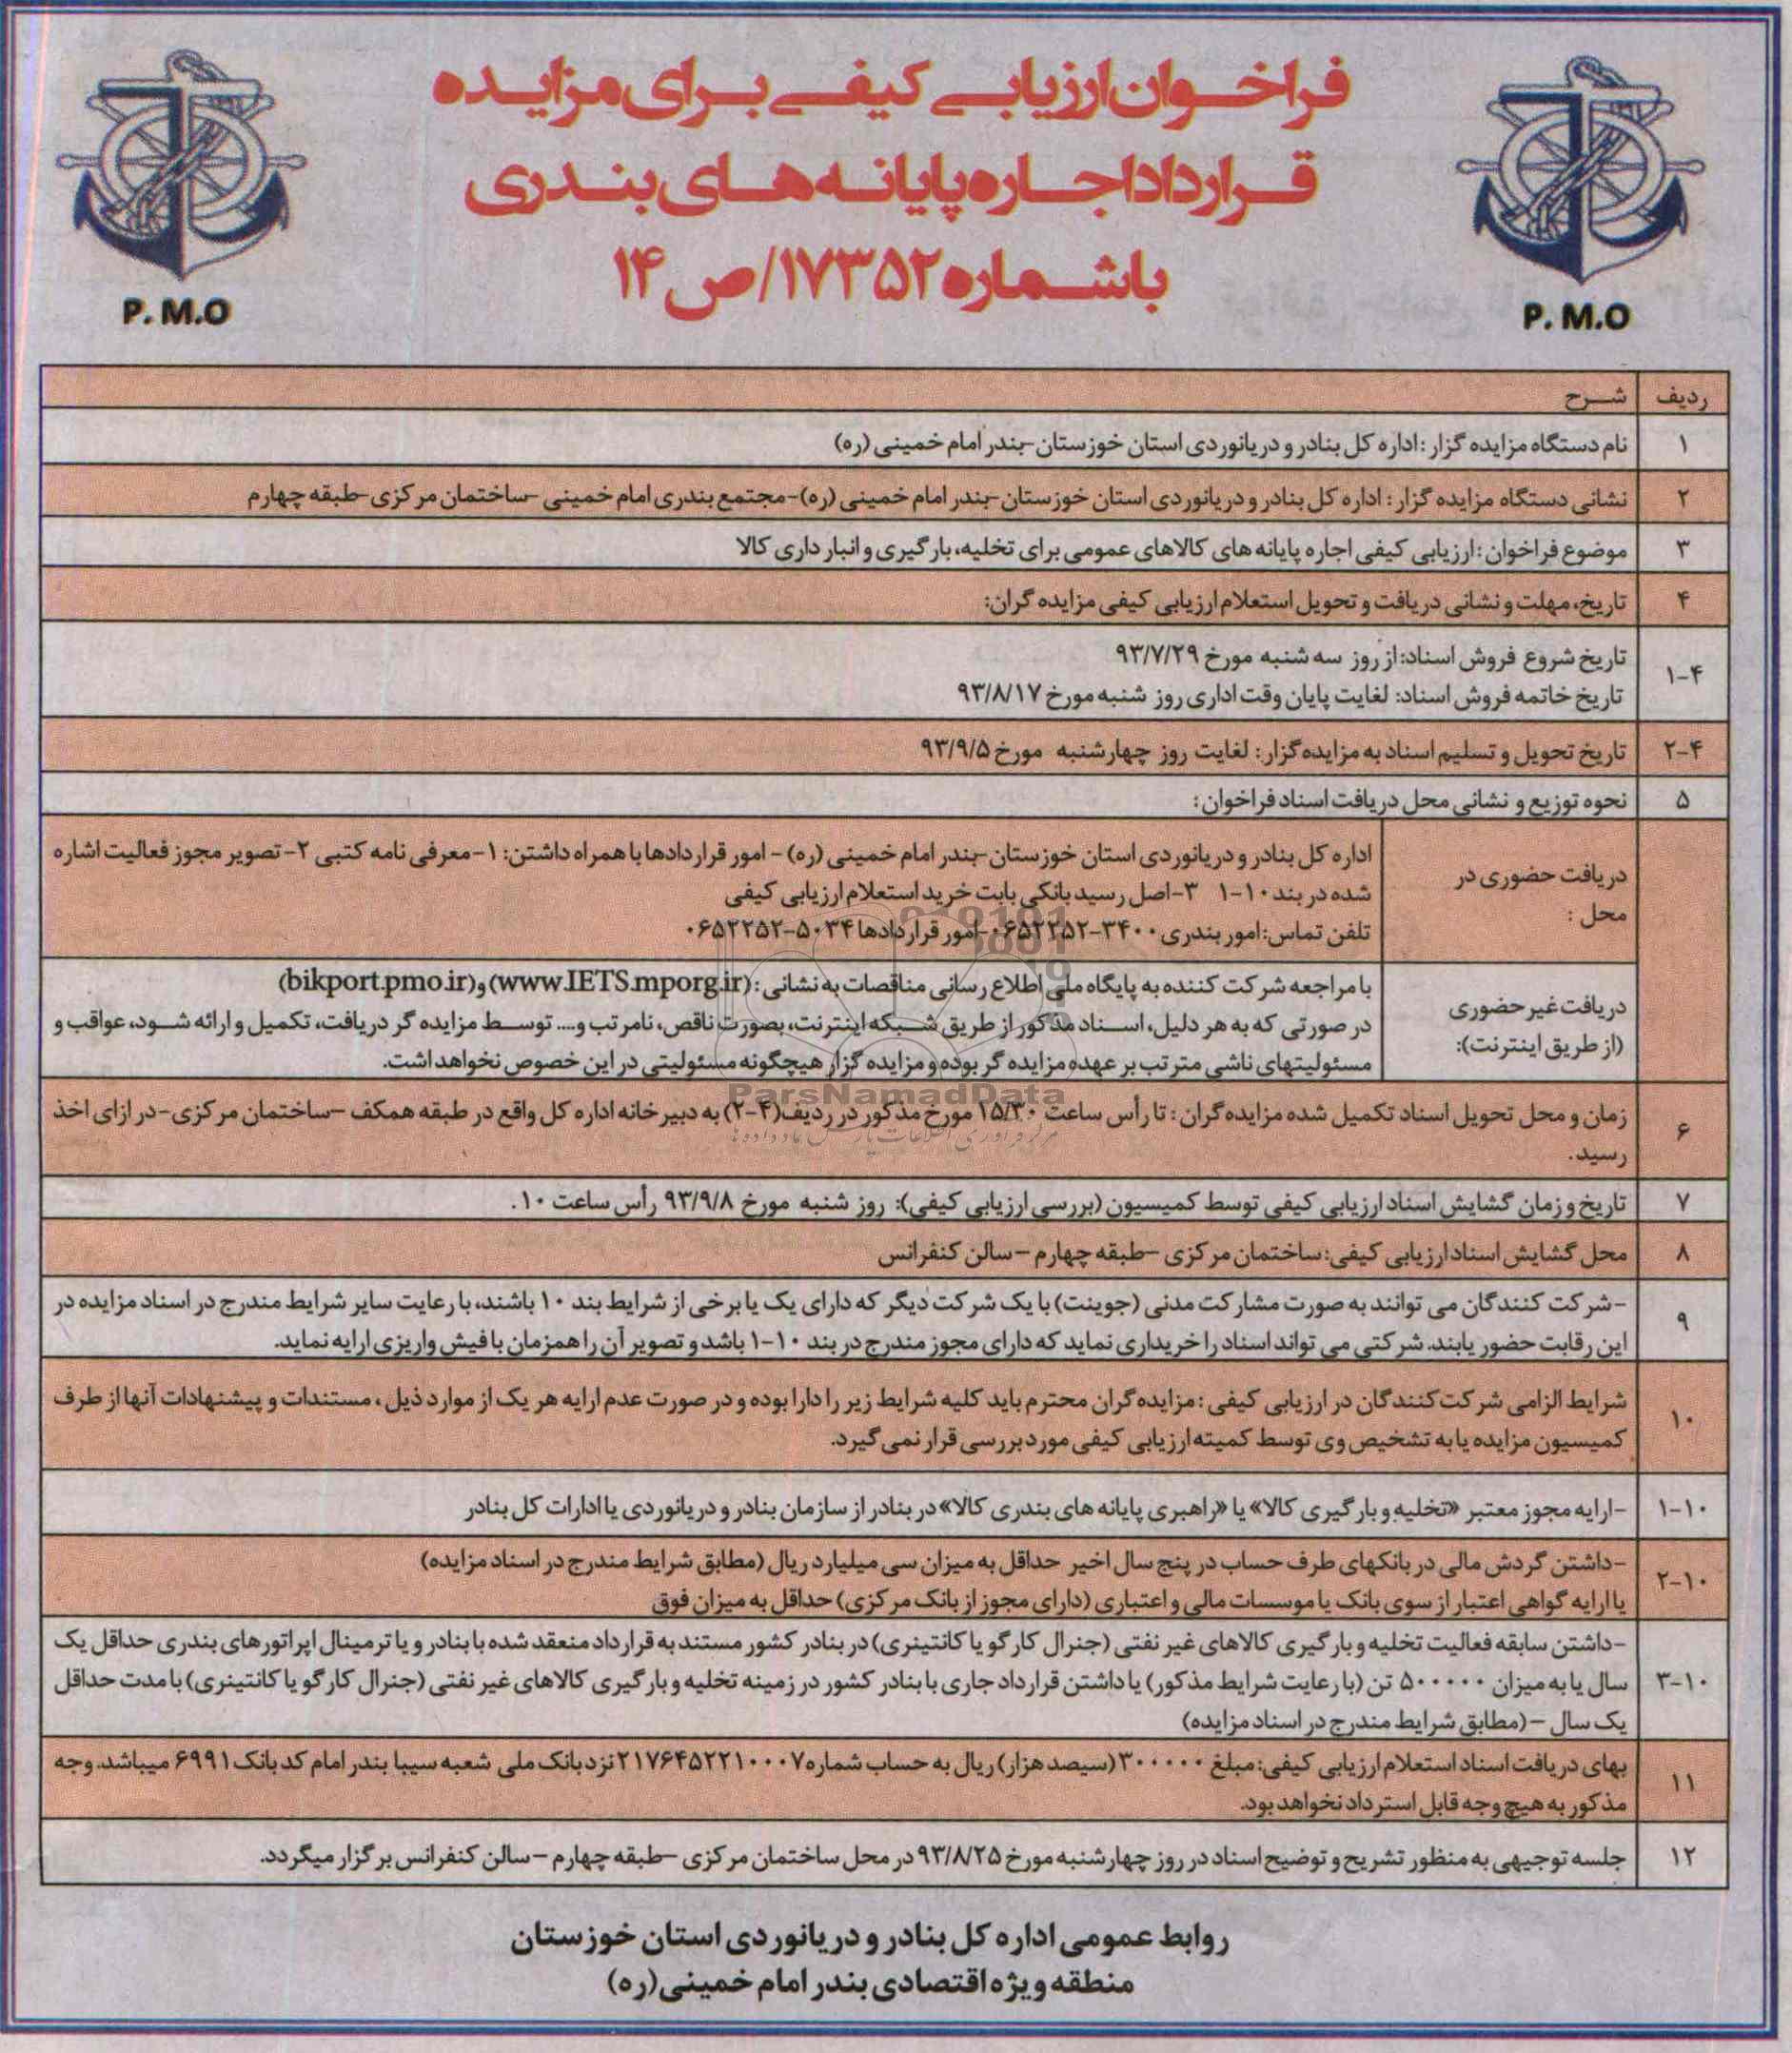 فراخوان ارزیابی کیفی برای مزایده
قرارداد اجاره پایانه های بندری
باشماره ۱۷۳۵۲/ص۱۴
P. M.O
P. M.O
ردیف شرح
۱ نام دستگاه مزایده گزار : اداره کل بنادر و دریانوردی استان خوزستان-بندر امام خمینی (ره)
۲ نشانی دستگاه مزایده گزار : اداره کل بنادر و دریانوردی استان خوزستان-بندر امام خمینی (ره)-مجتمع بندری امام خمینی -ساختمان مرکزی -طبقه چهارم
۳ موضوع فراخوان : ارزیابی کیفی اجاره پایانه های کالاهای عمومی برای تخلیه، بارگیری و انبار داری کالا
۴ تاریخ، مهلت و نشانی دریافت و تحویل استعلام ارزیابی کیفی مزایده گران:
۱-۴ تاریخ شروع فروش اسناد: از روز سه شنبه مورخ ۹۳/۷/۲۹
تاریخ خاتمه فروش اسناد: لغایت پایان وقت اداری روز شنبه مورخ ۹۳/۸/۱۷
۲-۴ تاریخ تحویل و تسلیم اسناد به مزایده گزار : لغایت روز چهارشنبه مورخ ۹۳/۹/۵
۵ نحوه توزیع و نشانی محل دریافت اسناد فراخوان :
دریافت حضوری در
محل :
اداره کل بنادر و دریانوردی استان خوزستان-بندر امام خمینی (ره) - امور قراردادها با همراه داشتن: ۱-معرفی نامه کتبی ۲-تصویر مجوز فعالیت اشاره
شده در بند ۱۰-۱ ۳-اصل رسید بانکی بابت خرید استعلام ارزیابی کیفی
تلفن تماس: امور بندری ۳۴۰۰-۰۶۵۲۲۵۲-امور قراردادها ۵۰۳۴-۰۶۵۲۲۵۲
دریافت غیر حضوری
(از طریق اینترنت):
با مراجعه شرکت کننده به پایگاه ملی اطلاع رسانی مناقصات به نشانی : (www.IETS.mporg.ir) و (bikport.pmo.ir)
در صورتی که به هر دلیل، اسناد مذکور از طریق شبکه اینترنت، بصورت ناقص، نامرتب و.... توسط مزایده گر دریافت، تکمیل و ارائه شود، عواقب و
مسئولیتهای ناشی مترتب بر عهده مزایده گر بوده و مزایده گزار هیچگونه مسئولیتی در این خصوص نخواهد اشت.
ParsNamadData
۶ زمان و محل تحویل اسناد تکمیل شده مزایده گران : تا رأس ساعت ۱۵/۳۰ مورخ مذکور در ردیف (۴-۲) به دبیرخانه اداره کل واقع در طبقه همکف -ساختمان مرکزی-در ازای اخذ
رسید.
۷ تاریخ و زمان گشایش اسناد ارزیابی کیفی توسط کمیسیون (بررسی ارزیابی کیفی): روز شنبه مورخ ۹۳/۹/۸ رأس ساعت ۱۰.
۸ محل گشایش اسناد ارزیابی کیفی: ساختمان مرکزی -طبقه چهارم -سالن کنفرانس
۹ -شرکت کنندگان می توانند به صورت مشارکت مدنی (جوینت) با یک شرکت دیگر که دارای یک یا برخی از شرایط بند ۱۰ باشند، با رعایت سایر شرایط مندرج در اسناد مزایده در
این رقابت حضور یابند. شرکتی می تواند اسناد را خریداری نماید که دارای مجوز مندرج در بند ۱۰-۱ باشد و تصویر آن را همزمان با فیش واریزی ارایه نماید.
۱۰ شرایط الزامی شرکت کنندگان در ارزیابی کیفی : مزایده گران محترم باید کلیه شرایط زیر را دارا بوده و در صورت عدم ارایه هر یک از موارد ذیل ، مستندات و پیشنهادات آنها از طرف
کمیسیون مزایده یا به تشخیص وی توسط کمیته ارزیابی کیفی مورد بررسی قرار نمی گیرد.
۱-۱۰ -ارایه مجوز معتبر «تخلیه و بارگیری کالا» یا «راهبری پایانه های بندری کالا» در بنادر از سازمان بنادر و دریانوردی یا ادارات کل بنادر
۲-۱۰ -داشتن گردش مالی در بانکهای طرف حساب در پنج سال اخیر حداقل به میزان سی میلیارد ریال (مطابق شرایط مندرج در اسناد مزایده)
یا ارایه گواهی اعتبار از سوی بانک یا موسسات مالی و اعتباری (دارای مجوز از بانک مرکزی) حداقل به میزان فوق
۳-۱۰ -داشتن سابقه فعالیت تخلیه و بارگیری کالاهای غیر نفتی (جنرال کارگو یا کانتینری) در بنادر کشور مستند به قرارداد منعقد شده با بنادر و یا ترمینال اپراتورهای بندری حداقل یک
سال یا به میزان ۵۰۰۰۰۰ تن (با رعایت شرایط مذکور) یا داشتن قرارداد جاری با بنادر کشور در زمینه تخلیه و بارگیری کالاهای غیر نفتی (جنرال کارگو یا کانتینری) با مدت حداقل
یک سال -(مطابق شرایط مندرج در اسناد مزایده)
۱۱ بهای دریافت اسناد استعلام ارزیابی کیفی: مبلغ ۳۰۰۰۰۰ (سیصد هزار) ریال به حساب شماره ۲۱۷۶۴۵۲۲۱۰۰۰۷ نزد بانک ملی شعبه سیبا بندر امام کد بانک ۶۹۹۱ میباشد. وجه
مذکور به هیچ وجه قابل استرداد نخواهد بود.
۱۲ جلسه توجیهی به منظور تشریح و توضیح اسناد در روز چهارشنبه مورخ ۹۳/۸/۲۵ در محل ساختمان مرکزی -طبقه چهارم -سالن کنفرانس برگزار میگردد.
روابط عمومی اداره کل بنادر و دریانوردی استان خوزستان
منطقه ویژه اقتصادی بندر امام خمینی (ره)